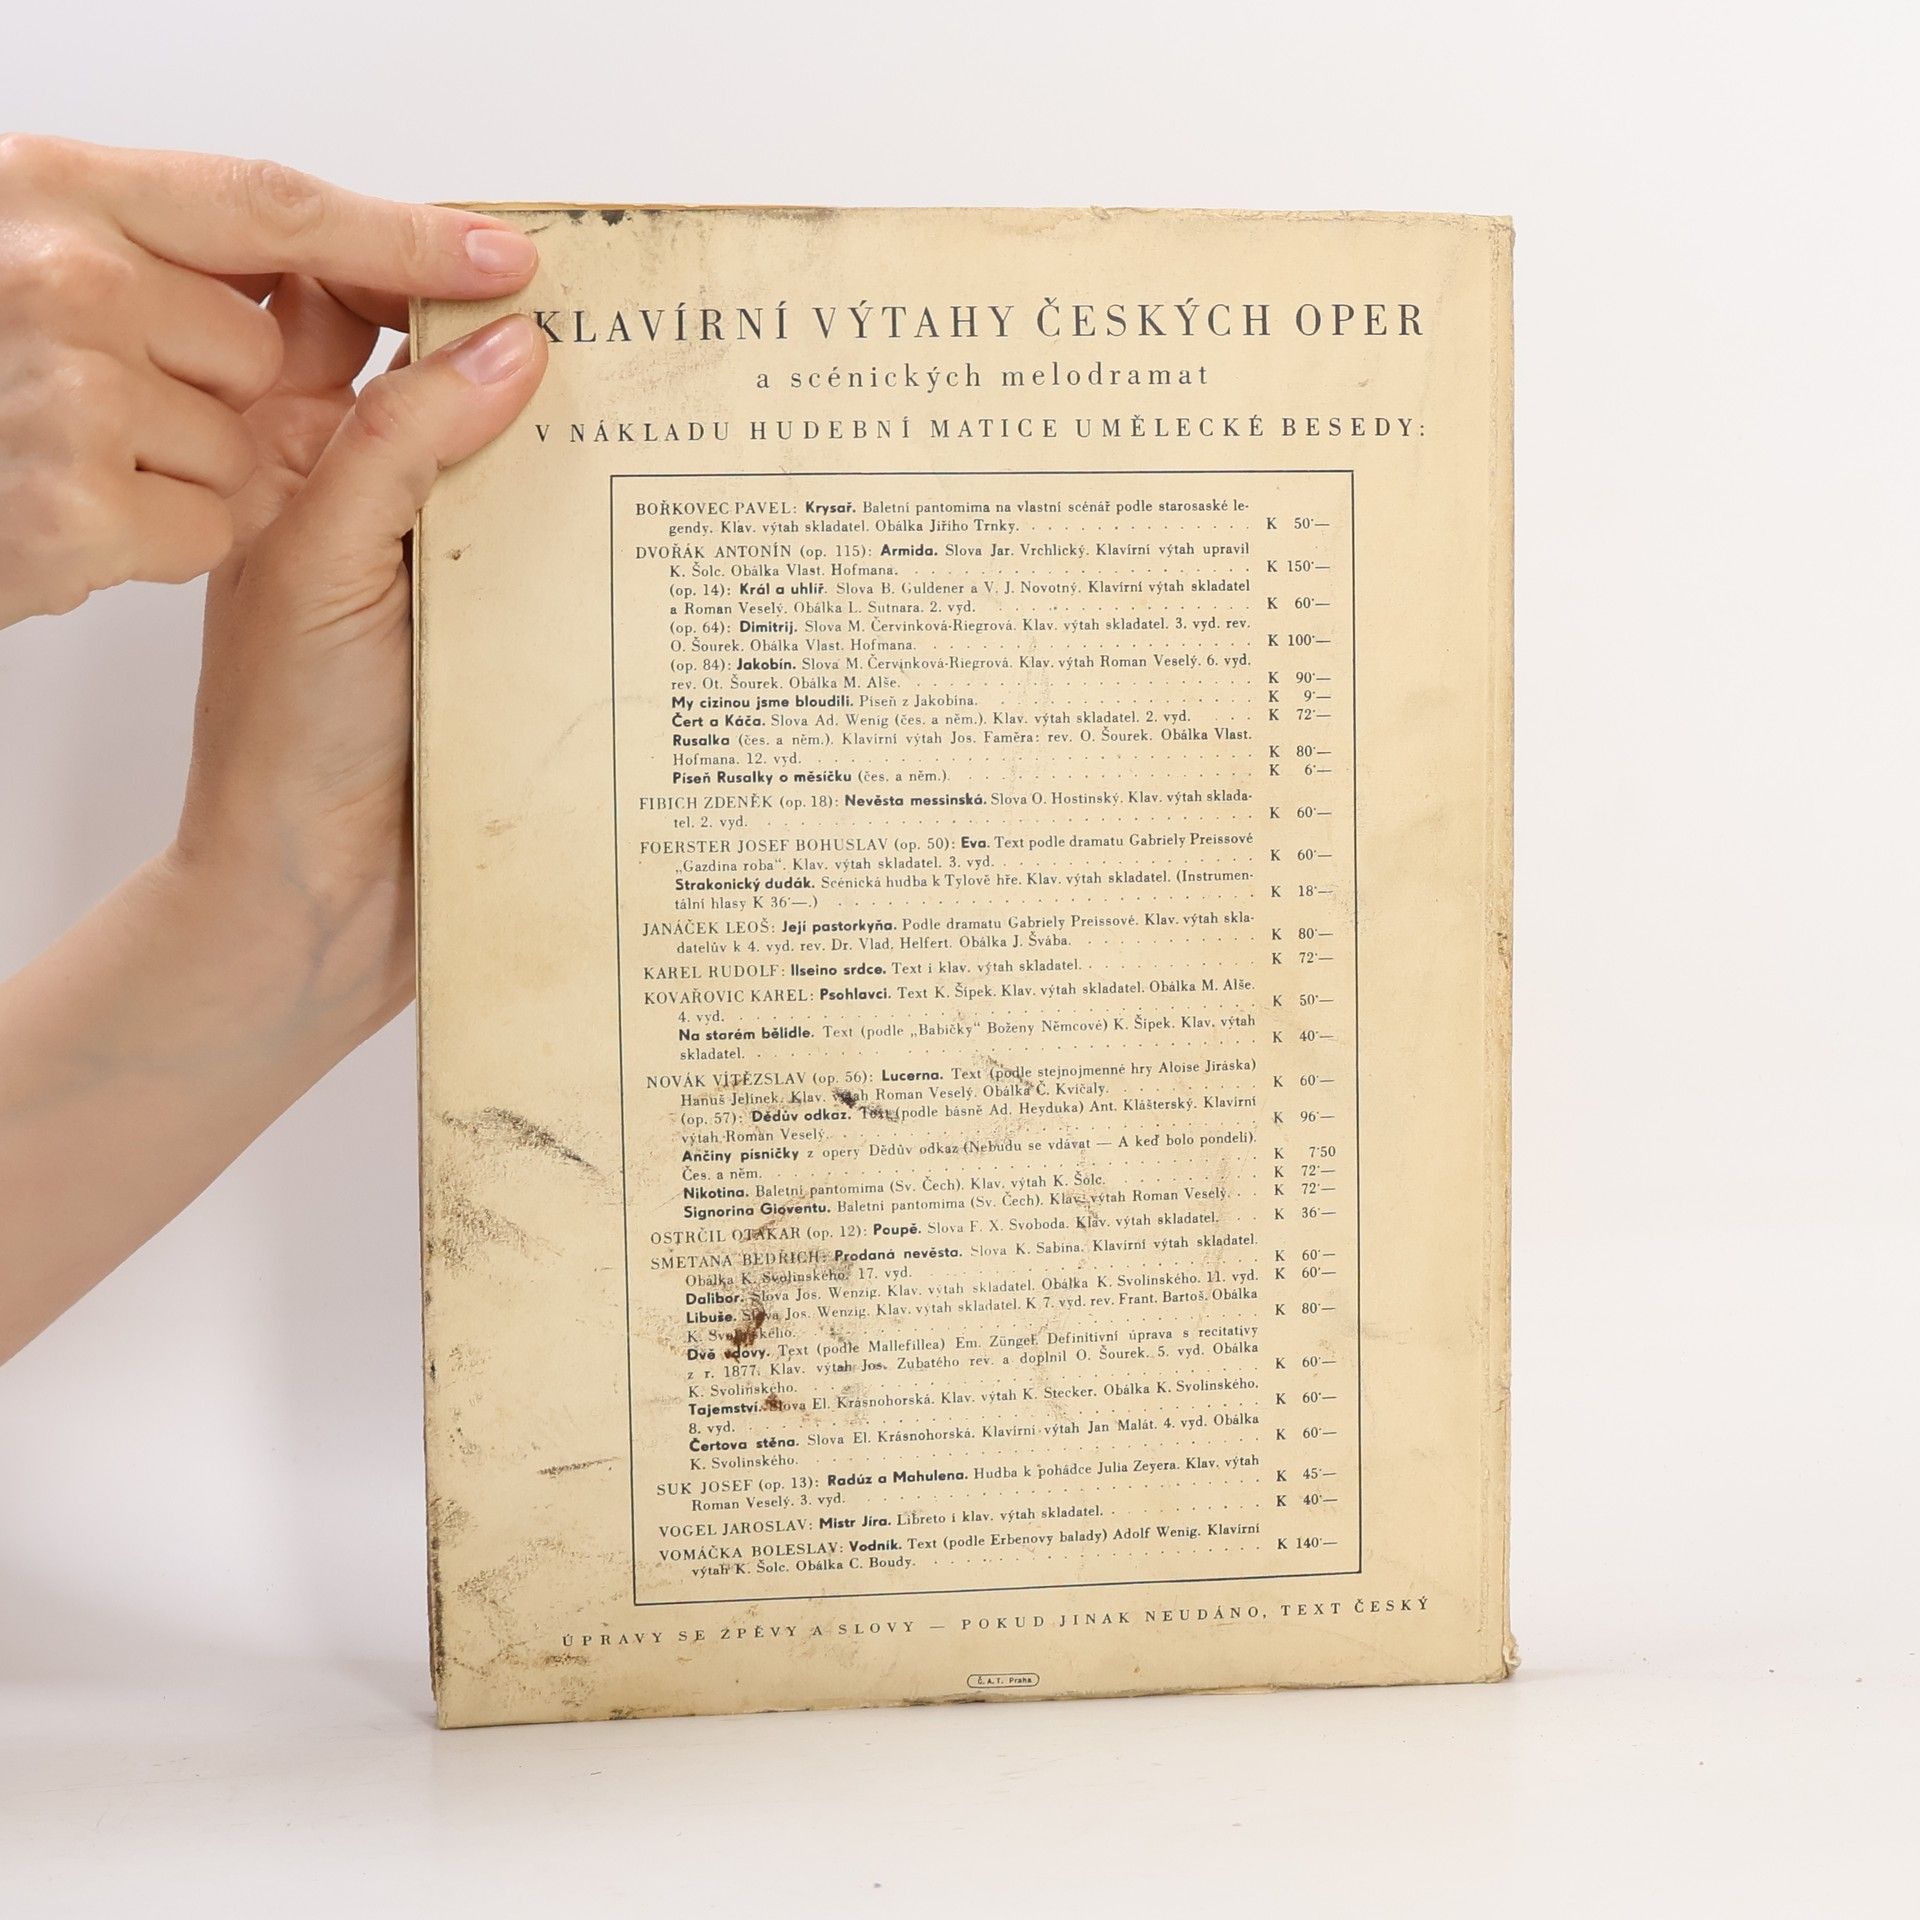 KLAVÍRNÍ VÝTAHY ČESKÝCH OPER
a scénických melodramat
V NÁKLADU HUDEBNÍ MATICE UMĚLECKÉ BESEDY:
BOŘKOVEC PAVEL: Krysař. Baletní pantomima na vlastní scénář podle starosaské le-
gendy. Klav. výtah skladatel. Obálka Jiřího Trnky. K 50·—
DVOŘÁK ANTONÍN (op. 115): Armida. Slova Jar. Vrchlický. Klavírní výtah upravil
K. Šolc. Obálka Vlast. Hofmana. K 150·—
(op. 14): Král a uhlíř. Slova B. Guldener a V. J. Novotný. Klavírní výtah skladatel
a Roman Veselý. Obálka L. Sutnara. 2. vyd. K 60·—
(op. 64): Dimitrij. Slova M. Červinková-Riegrová. Klav. výtah skladatel. 3. vyd. rev.
O. Šourek. Obálka Vlast. Hofmana. K 100·—
(op. 84): Jakobín. Slova M. Červinková-Riegrová. Klav. výtah Roman Veselý. 6. vyd.
rev. Ot. Šourek. Obálka M. Alše. K 90·—
My cizinou jsme bloudili. Píseň z Jakobína. K 9·—
Čert a Káča. Slova Ad. Wenig (čes. a něm.). Klav. výtah skladatel. 2. vyd. K 72·—
Rusalka (čes. a něm.). Klavírní výtah Jos. Faměra: rev. O. Šourek. Obálka Vlast.
Hofmana. 12. vyd. K 80·—
Píseň Rusalky o měsíčku (čes. a něm.). K 6·—
FIBICH ZDENĚK (op. 18): Nevěsta messinská. Slova O. Hostinský. Klav. výtah sklada-
tel. 2. vyd. K 60·—
FOERSTER JOSEF BOHUSLAV (op. 50): Eva. Text podle dramatu Gabriely Preissové
„Gazdina roba“. Klav. výtah skladatel. 3. vyd. K 60·—
Strakonický dudák. Scénická hudba k Tylově hře. Klav. výtah skladatel. (Instrumen-
tální hlasy K 36·—.) K 18·—
JANÁČEK LEOŠ: Její pastorkyňa. Podle dramatu Gabriely Preissové. Klav. výtah skla-
datelův k 4. vyd. rev. Dr. Vlad. Helfert. Obálka J. Švába. K 80·—
KAREL RUDOLF: Ilseino srdce. Text i klav. výtah skladatel. K 72·—
KOVAŘOVIC KAREL: Psohlavci. Text K. Šípek. Klav. výtah skladatel. Obálka M. Alše.
4. vyd. K 50·—
Na starém bělidle. Text (podle „Babičky“ Boženy Němcové) K. Šípek. Klav. výtah
skladatel. K 40·—
NOVÁK VÍTĚZSLAV (op. 56): Lucerna. Text (podle stejnojmenné hry Aloise Jiráska)
Hanuš Jelínek. Klav. výtah Roman Veselý. Obálka Č. Kvíčaly. K 60·—
(op. 57): Dědův odkaz. Text (podle básně Ad. Heyduka) Ant. Klášterský. Klavírní
výtah Roman Veselý. K 96·—
Ančiny písničky z opery Dědův odkaz (Nebudu se vdávat — A keď bolo pondelí).
Čes. a něm. K 7·50
Nikotina. Baletní pantomima (Sv. Čech). Klav. výtah K. Šolc. K 72·—
Signorina Gioventu. Baletní pantomima (Sv. Čech). Klav. výtah Roman Veselý. K 72·—
OSTRČIL OTAKAR (op. 12): Poupě. Slova F. X. Svoboda. Klav. výtah skladatel. K 36·—
SMETANA BEDŘICH: Prodaná nevěsta. Slova K. Sabina. Klavírní výtah skladatel.
Obálka K. Svolinského. 17. vyd. K 60·—
Dalibor. Slova Jos. Wenzig. Klav. výtah skladatel. Obálka K. Svolinského. 11. vyd. K 60·—
Libuše. Slova Jos. Wenzig. Klav. výtah skladatel. K 7. vyd. rev. Frant. Bartoš. Obálka
K. Svolinského. K 80·—
Dvě vdovy. Text (podle Mallefillea) Em. Züngel. Definitivní úprava s recitativy
z r. 1877. Klav. výtah Jos. Zubatého rev. a doplnil O. Šourek. 5. vyd. Obálka
K. Svolinského. K 60·—
Tajemství. Slova El. Krásnohorská. Klav. výtah K. Stecker. Obálka K. Svolinského.
8. vyd. K 60·—
Čertova stěna. Slova El. Krásnohorská. Klavírní výtah Jan Malát. 4. vyd. Obálka
K. Svolinského. K 60·—
SUK JOSEF (op. 13): Radúz a Mahulena. Hudba k pohádce Julia Zeyera. Klav. výtah
Roman Veselý. 3. vyd. K 45·—
VOGEL JAROSLAV: Mistr Jíra. Libreto i klav. výtah skladatel. K 40·—
VOMÁČKA BOLESLAV: Vodník. Text (podle Erbenovy balady) Adolf Wenig. Klavírní
výtah K. Šolc. Obálka C. Boudy. K 140·—
ÚPRAVY SE ZPĚVY A SLOVY — POKUD JINAK NEUDÁNO, TEXT ČESKÝ
Č. A. T. Praha